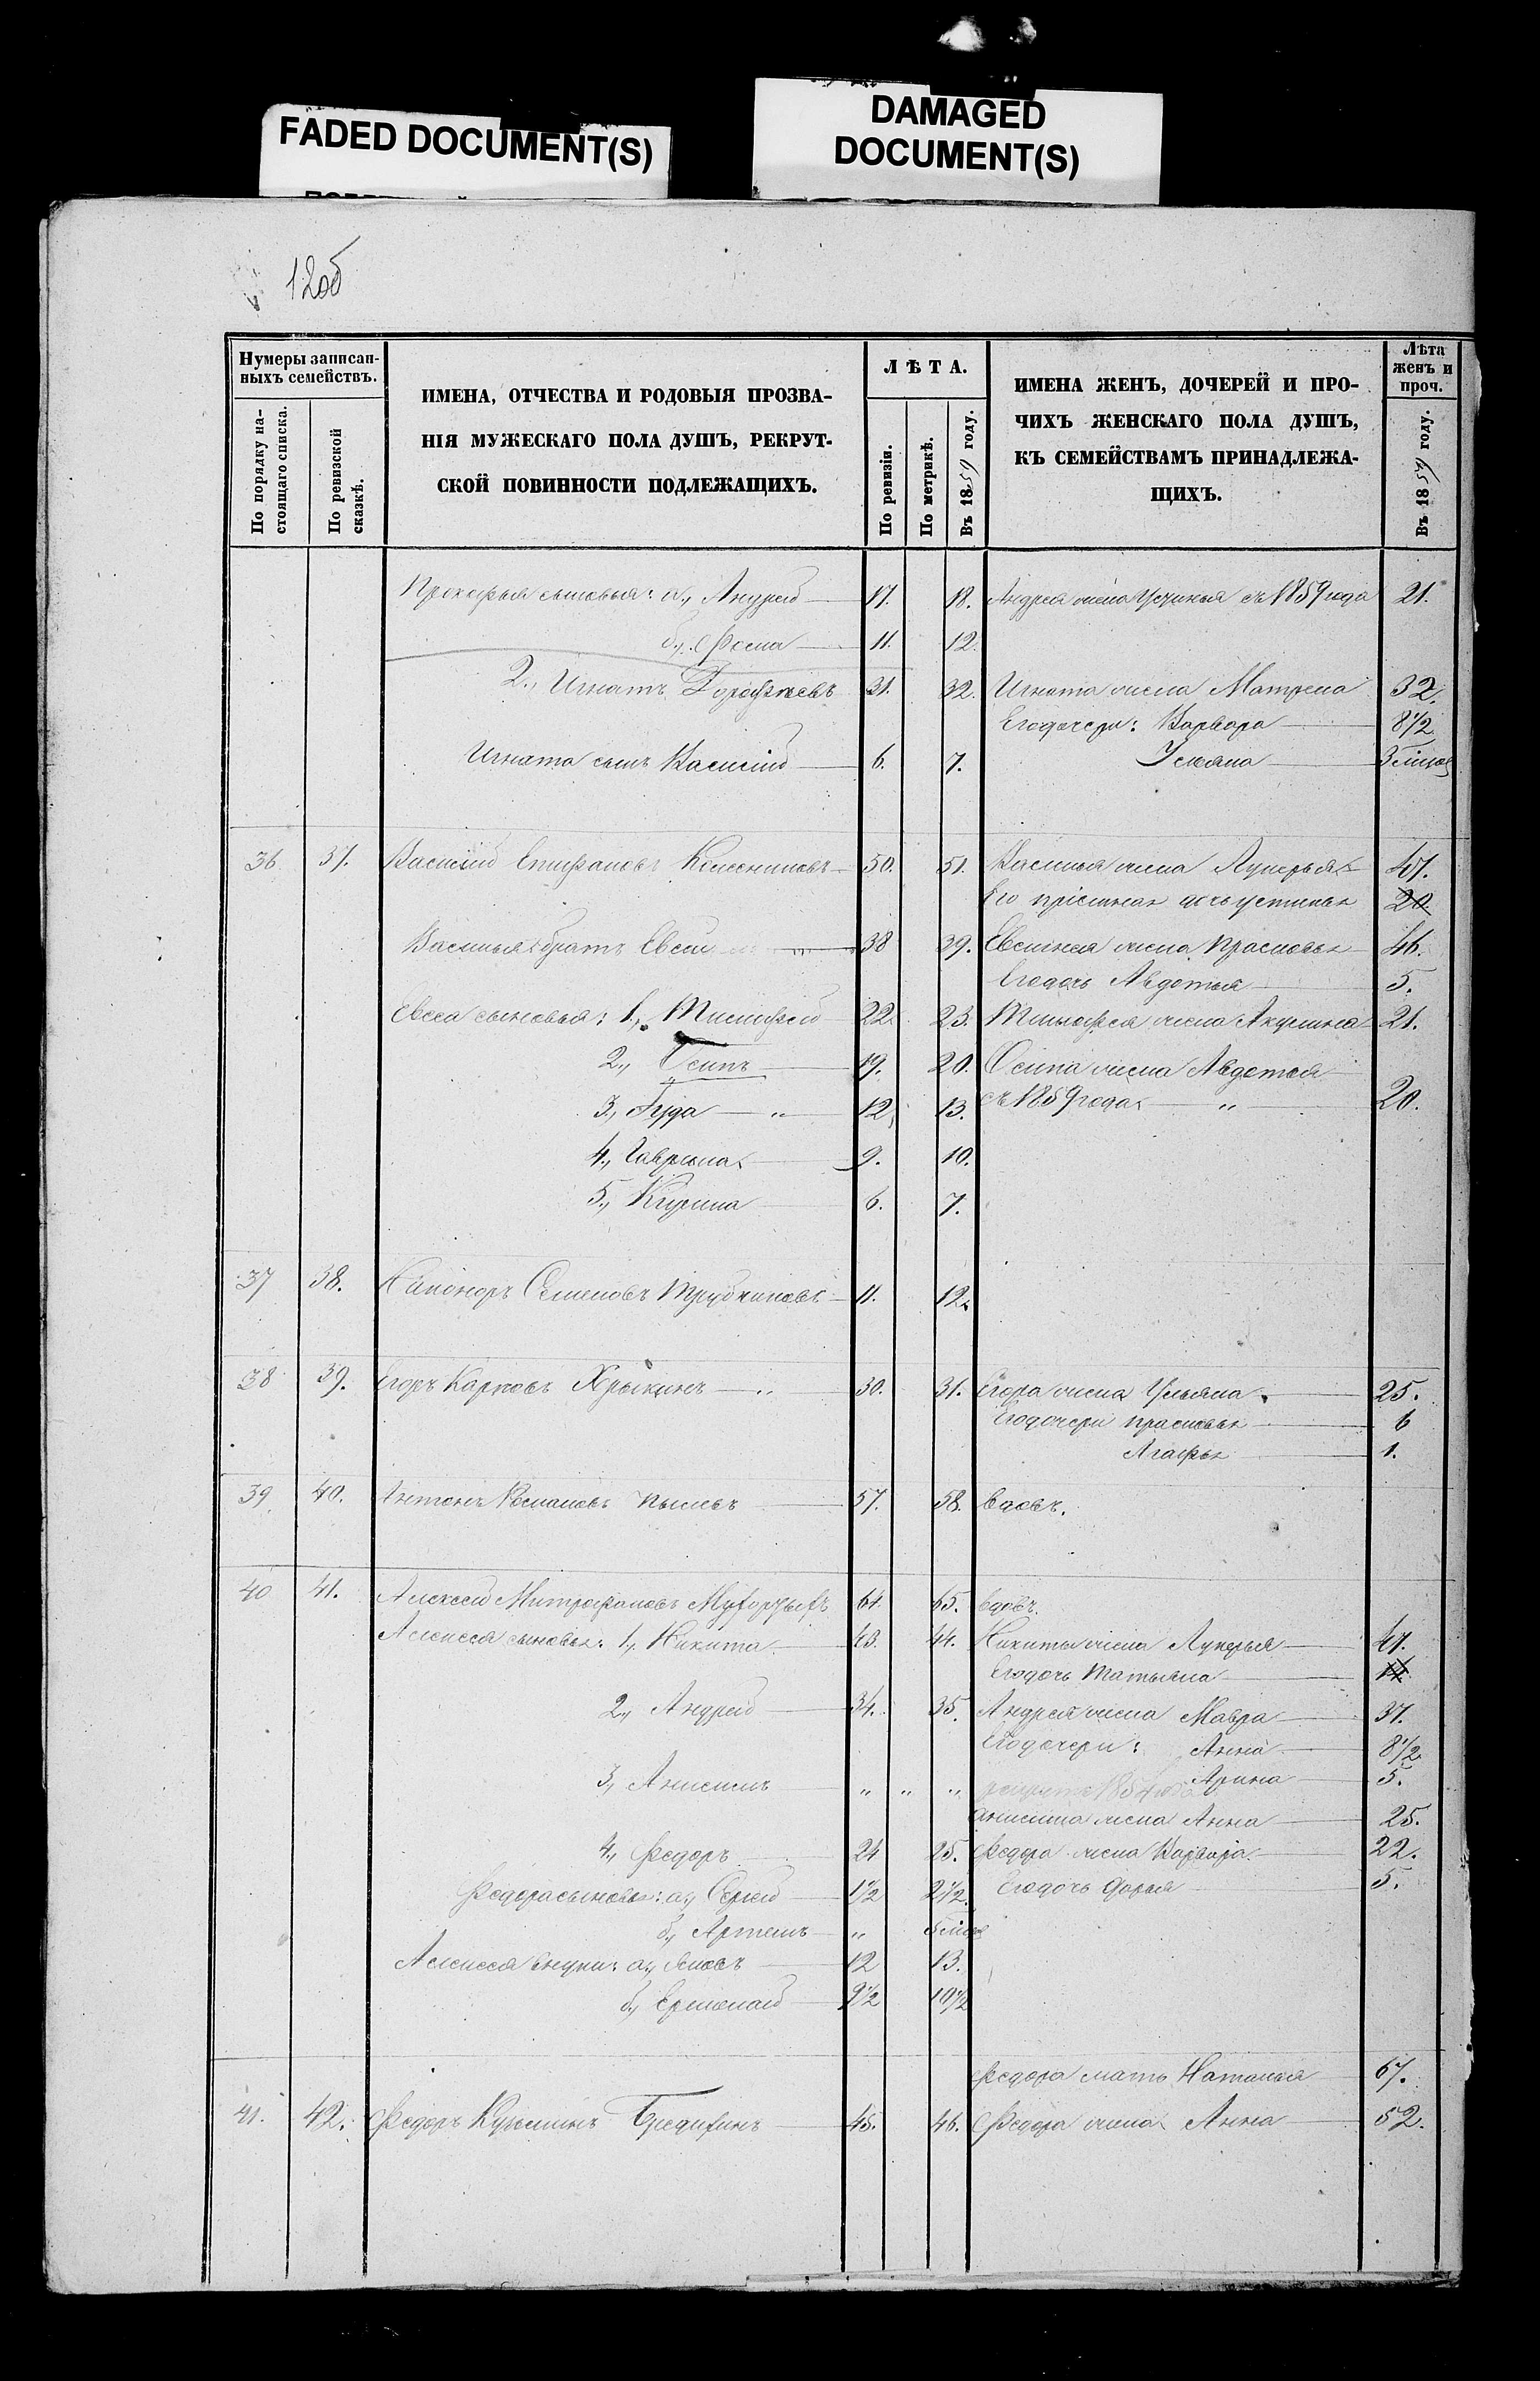 FADED DOCUMENT(S)
DAMAGED
DOCUMENT(S)
12об
Нумеры записан-
ныхъ семействъ.
По порядку на-
стоящаго списка.
По ревизской
сказкѣ.
ИМЕНА, ОТЧЕСТВА И РОДОВЫЯ ПРОЗВА-
НІЯ МУЖЕСКАГО ПОЛА ДУШЪ, РЕКРУТ-
СКОЙ ПОВИННОСТИ ПОДЛЕЖАЩИХЪ.
ЛѢТА.
По ревизіи.
По метрикѣ.
Въ 1859 году.
ИМЕНА ЖЕНЪ, ДОЧЕРЕЙ И ПРО-
ЧИХЪ ЖЕНСКАГО ПОЛА ДУШЪ,
КЪ СЕМЕЙСТВАМЪ ПРИНАДЛЕЖА-
ЩИХЪ.
Лѣта
женъ и
проч.
Въ 1859 году.
Прокофья сыновья: а., Андрей 17. 18. Андрея жена Устинья съ 1859 года 21.
б., Фома 11. 12.
2., Игнатъ Дорофѣевъ 31. 32. Игната жена Матрена 32.
Его дочери: Варвара 8 1/2
Игната сынъ Василій 6. 7. Ульяна
36 37. Василій Епифановъ 50. 51. Василья жена Лукерья 47.
Его дочь Устинья 20.
Василья братъ Евсей 38 39. Евсея жена Прасковья 46.
Его дочь Авдотья 5.
Евсея сыновья: 1., Тимофей 22. 23. Тимофея жена Акулина 21.
2., Осипъ 19. 20. Осипа жена Авдотья
съ 1859 года " 20.
3., Гуда " 12. 13.
4., Гаврила 9. 10.
5., Кирила 6. 7.
37 38. Никоноръ Семеновъ Трубниковъ 11. 12.
38 39. Егоръ Карповъ Хрыкинъ " 30. 31. Егора жена Ульяна 25.
Его дочери Прасковья 6
Агафья 1.
39 40. Антонъ Романовъ 57. 58. вдовъ.
40 41. Алексей Митрофановъ 64. 65. вдовъ.
Алексея сыновья: 1., Никита 43. 44. Никиты жена Лукерья 47.
Его дочь Татьяна 14.
2., Андрей 34. 35. Андрея жена Мавра 37.
Его дочери: Анна 8 1/2
Арина 5.
3., Анисимъ " " "
Анисима жена Анна 25.
4., Федоръ 24 25. Федора жена Варвара 22.
Федора сыновья: а., Сергей 1 1/2 2 1/2. Его дочь Дарья 5.
б., Артемъ "
Алексея внуки: а., Яковъ 12 13.
б., Ермолай 9 1/2 10 1/2
Федора мать Наталья 67.
41. 42. Федоръ Кузьминъ Бредихинъ 45. 46. Федора жена Анна 52.